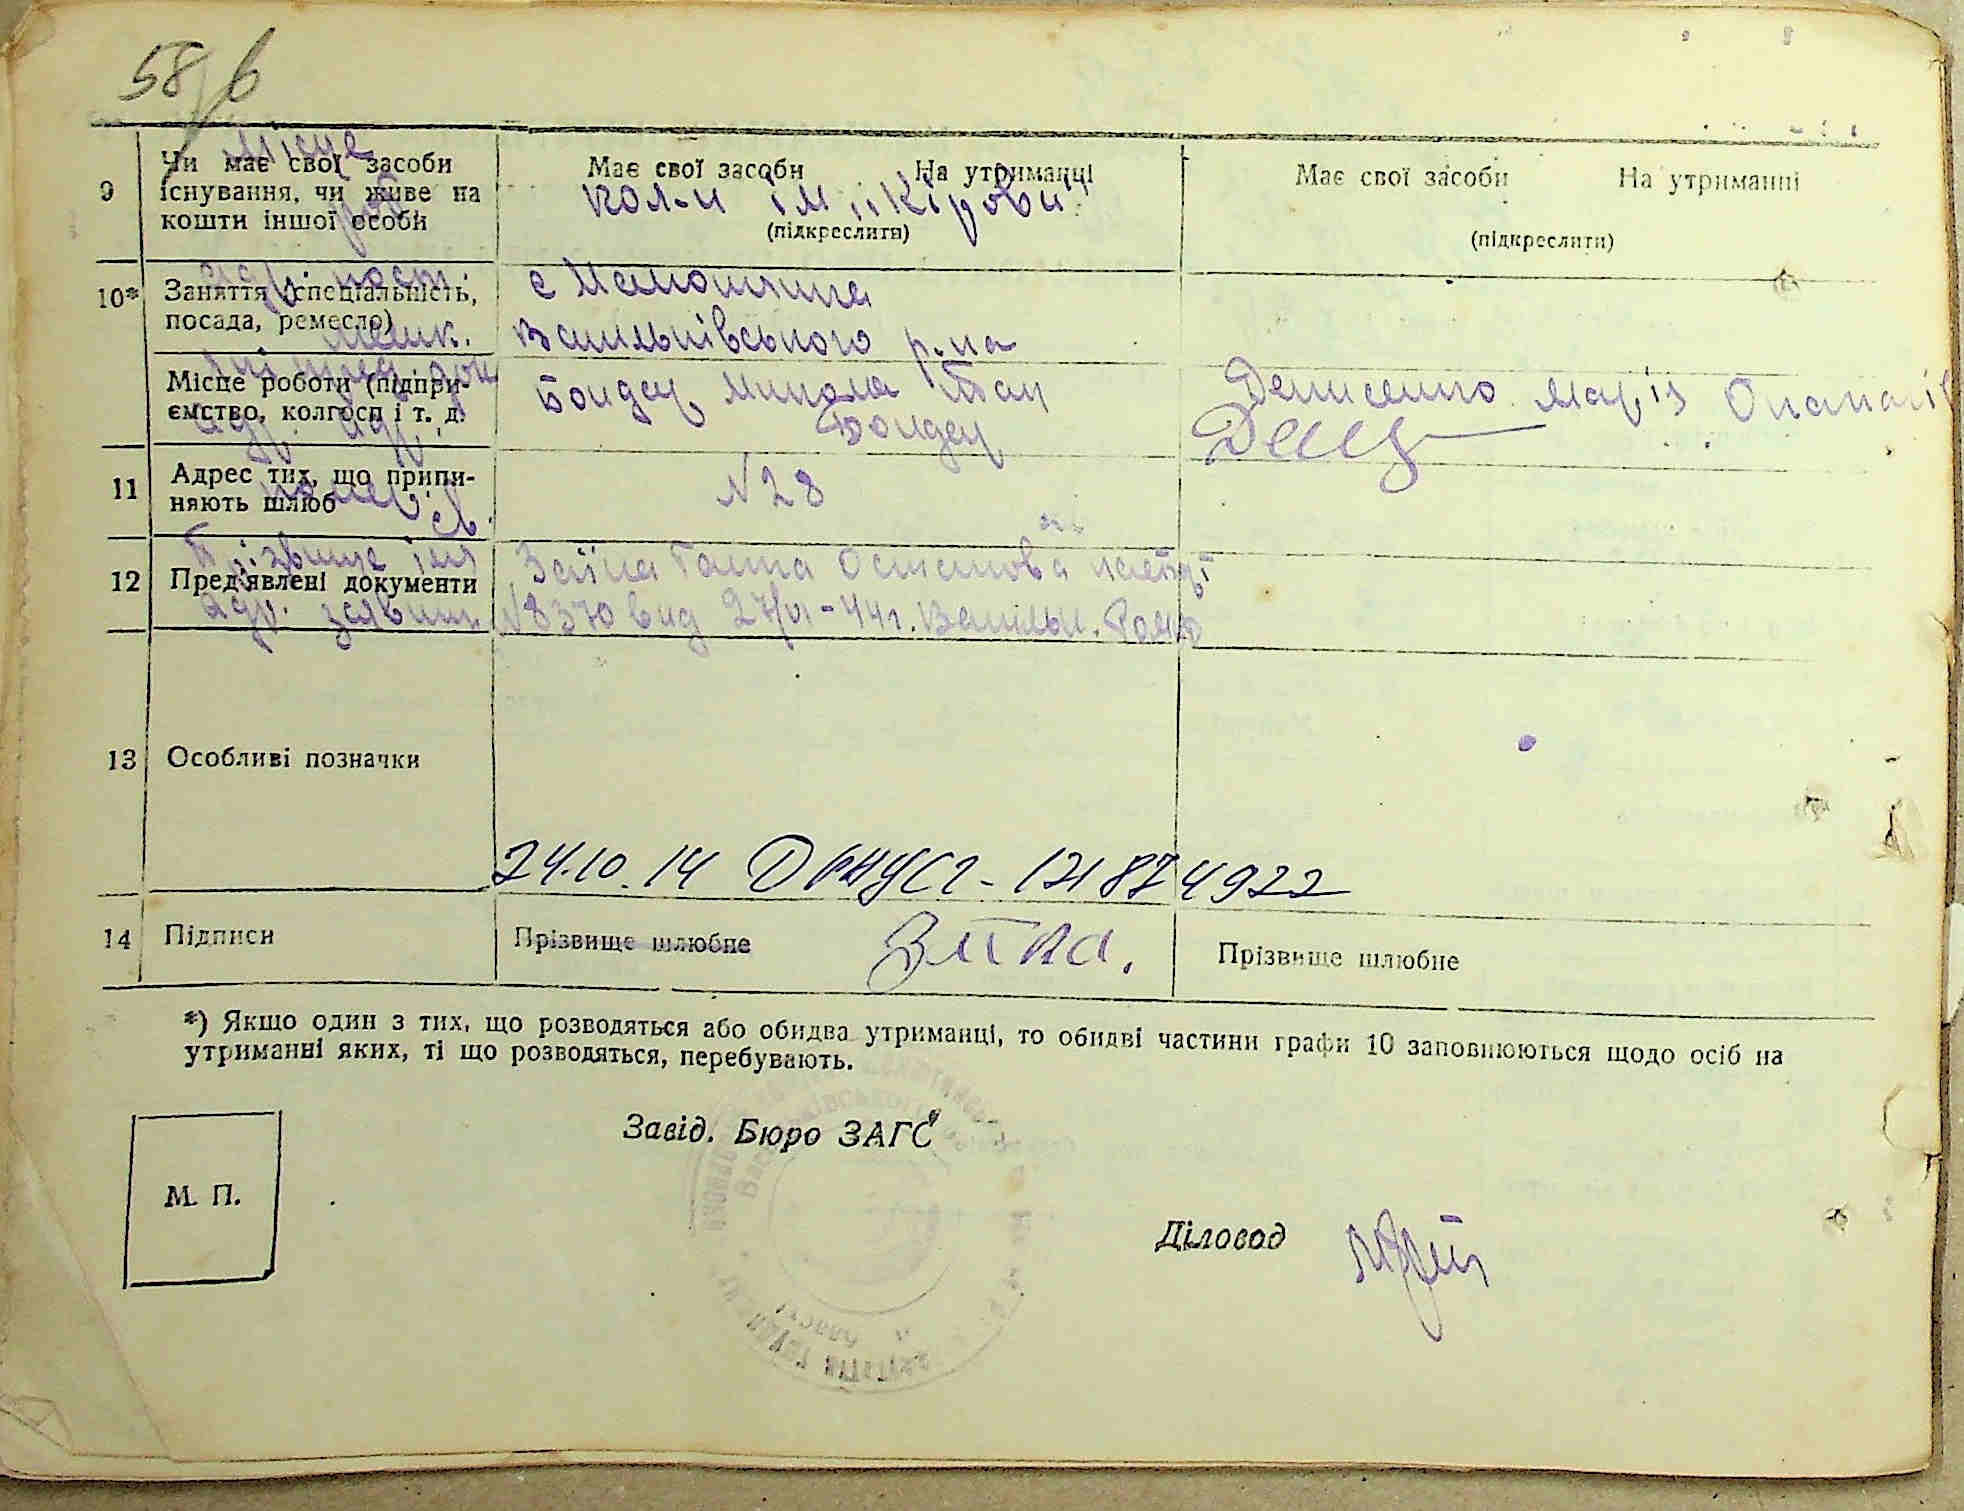 58 в
9
Чи має свої засоби
існування, чи живе на
кошти іншої особи
Місце
роб.
Має свої засоби На утриманці
кол-п ім. „Кірова"
(підкреслити)
Має свої засоби На утриманні
(підкреслити)
10*
Заняття (спеціальність,
посада, ремесло)
адр. пост.
мешк.
с Мамошчина
Васильківського р-на
Місце роботи (підпри-
ємство, колгосп і т. д.
Бондар Микола
Бондар
Денисенко Марія
11
Адрес тих, що припи-
няють шлюб
№28
12
Пред'явлені документи
Прізвище ім'я
адр. заявит.
Заїка Ганна Остапова
№ 8370 вид 27/VI-44г. Васильк.
13
Особливі позначки
24.10.14 ДРАЦСГ-121874922
14
Підписи
Прізвище шлюбне
Заїка.
Прізвище шлюбне
*) Якщо один з тих, що розводяться або обидва утриманці, то обидві частини графи 10 заповнюються щодо осіб на
утриманні яких, ті що розводяться, перебувають.
Завід. Бюро ЗАГС
М. П.
Діловод